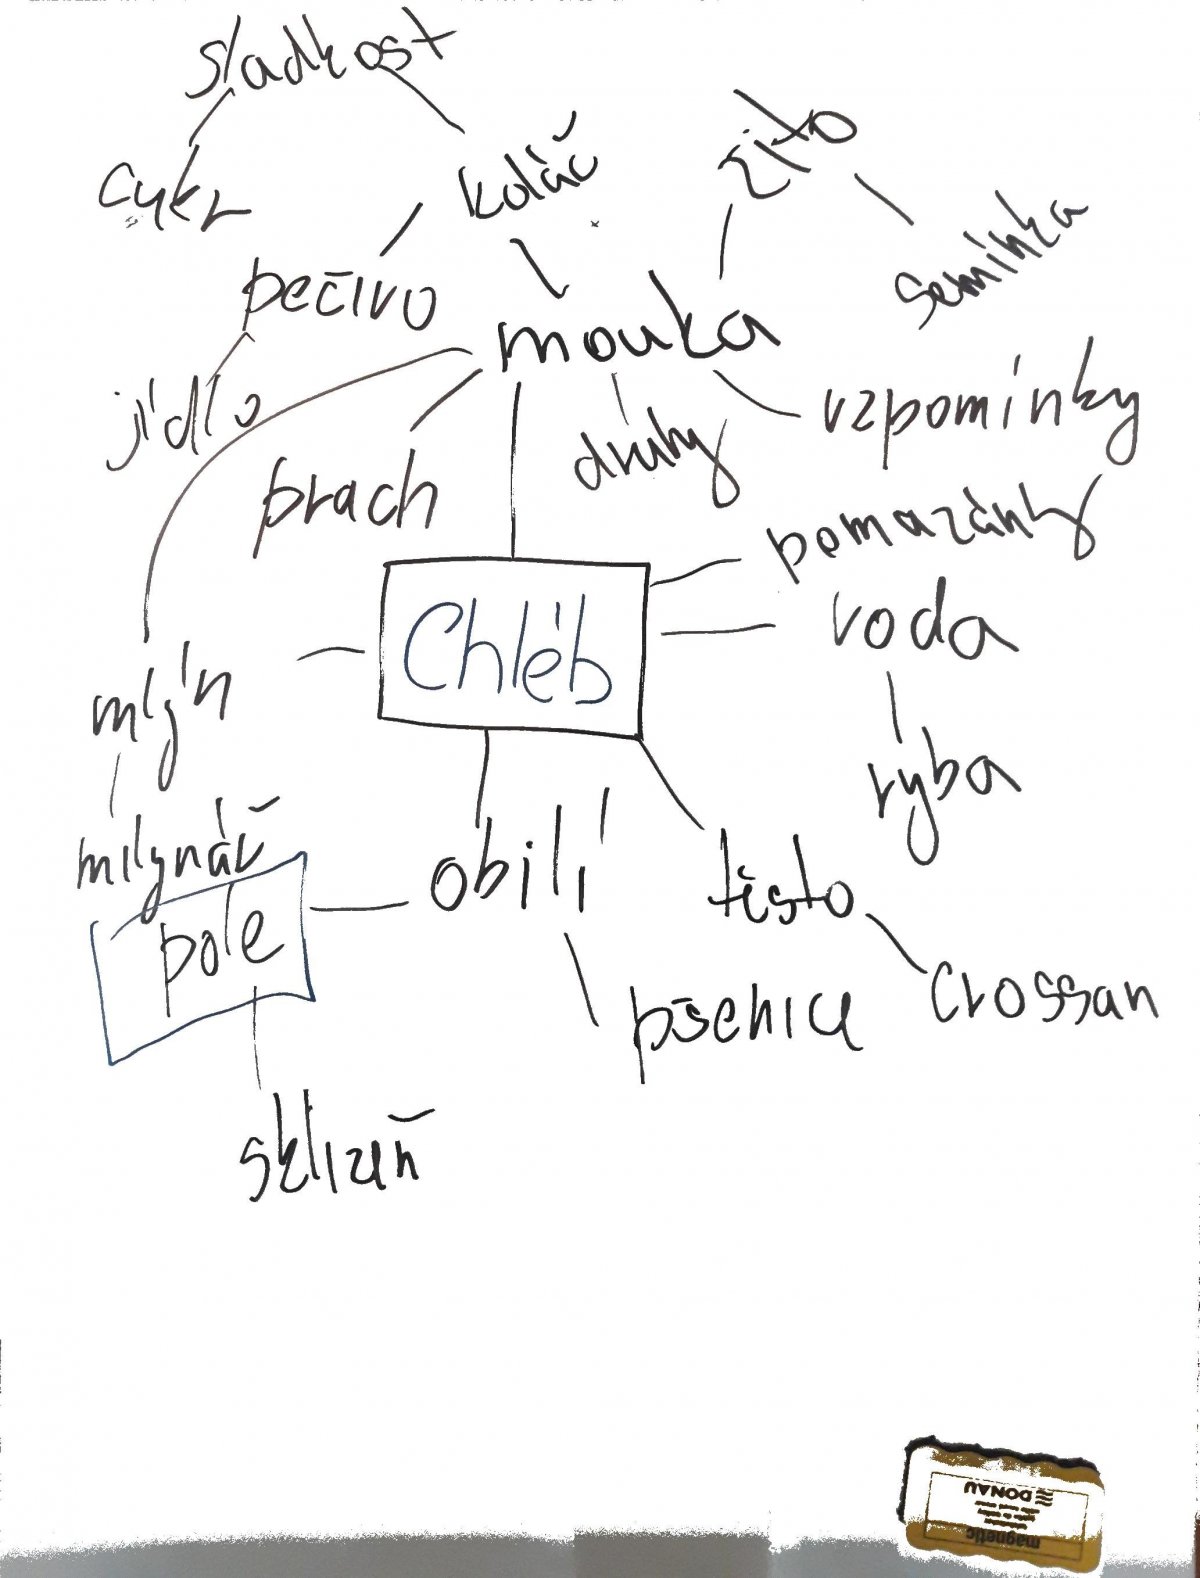 sladkost
cykr
koláč
žito
semínka
pečivo
mouka
jídlo
vzpomínky
druhy
prach
pomazánky
Chléb
voda
mlýn
ryba
mlynář
obilí
těsto
pole
pšenice
Crossan
sklizeň
DONAU
magnetic